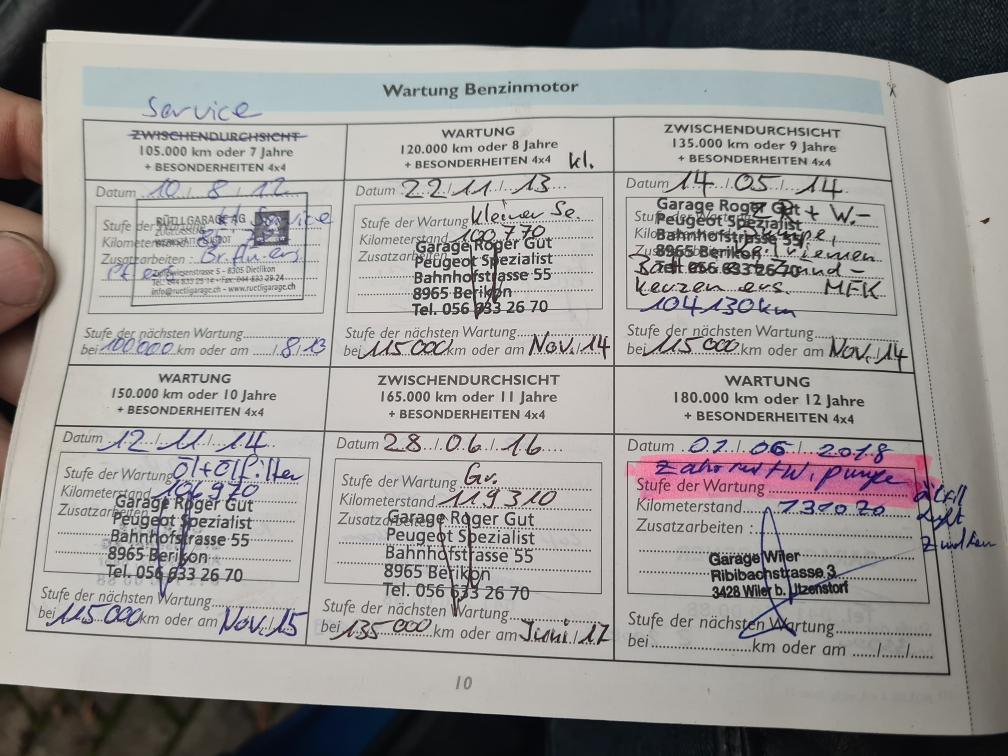 Wartung Benzinmotor
Service
ZWISCHENDURCHSICHT
105.000 km oder 7 Jahre
+ BESONDERHEITEN 4x4
Datum 10 / 8 / 12
RÜTLI GARAGE AG
Stufe der Wartung Service
Kilometerstand
Zusatzarbeiten :
8305 Dietlikon
info@ruetligarage.ch – www.ruetligarage.ch
Stufe der nächsten Wartung
bei 100000 km oder am / 8 / 13
WARTUNG
120.000 km oder 8 Jahre
+ BESONDERHEITEN 4x4 kl.
Datum 22 / 11 / 13
Stufe der Wartung kleiner Se.
Kilometerstand 100770
Zusatzarbeiten
Garage Roger Gut
Peugeot Spezialist
Bahnhofstrasse 55
8965 Berikon
Tel. 056 633 26 70
Stufe der nächsten Wartung
bei 115000 km oder am Nov. / 14
ZWISCHENDURCHSICHT
135.000 km oder 9 Jahre
+ BESONDERHEITEN 4x4
Datum 14 / 05 / 14
Garage Roger Gut
Stufe der Wartung + W.-
Peugeot Spezialist
Bahnhofstrasse 55
8965 Berikon
Tel. 056 633 26 70 Zünd-
kerzen ers. MFK
104130km
Stufe der nächsten Wartung
bei 115000 km oder am Nov. / 14
WARTUNG
150.000 km oder 10 Jahre
+ BESONDERHEITEN 4x4
Datum 12 / 11 / 14
Stufe der Wartung Öl+Ölfilter
Kilometerstand 106970
Zusatzarbeiten
Garage Roger Gut
Peugeot Spezialist
Bahnhofstrasse 55
8965 Berikon
Tel. 056 633 26 70
Stufe der nächsten Wartung
bei 115000 km oder am Nov. / 15
ZWISCHENDURCHSICHT
165.000 km oder 11 Jahre
+ BESONDERHEITEN 4x4
Datum 28 / 06 / 16
Stufe der Wartung Gr.
Kilometerstand 119310
Zusatzarbeiten
Garage Roger Gut
Peugeot Spezialist
Bahnhofstrasse 55
8965 Berikon
Tel. 056 633 26 70
Stufe der nächsten Wartung
bei 135000 km oder am Juni / 17
WARTUNG
180.000 km oder 12 Jahre
+ BESONDERHEITEN 4x4
Datum 07 / 06 / 2018
Zahnrad+W.pumpe
Stufe der Wartung
Kilometerstand 131020
Zusatzarbeiten :
Garage Wiler
Ribibachstrasse 3
3428 Wiler b. Utzenstorf
Stufe der nächsten Wartung
bei km oder am / /
10